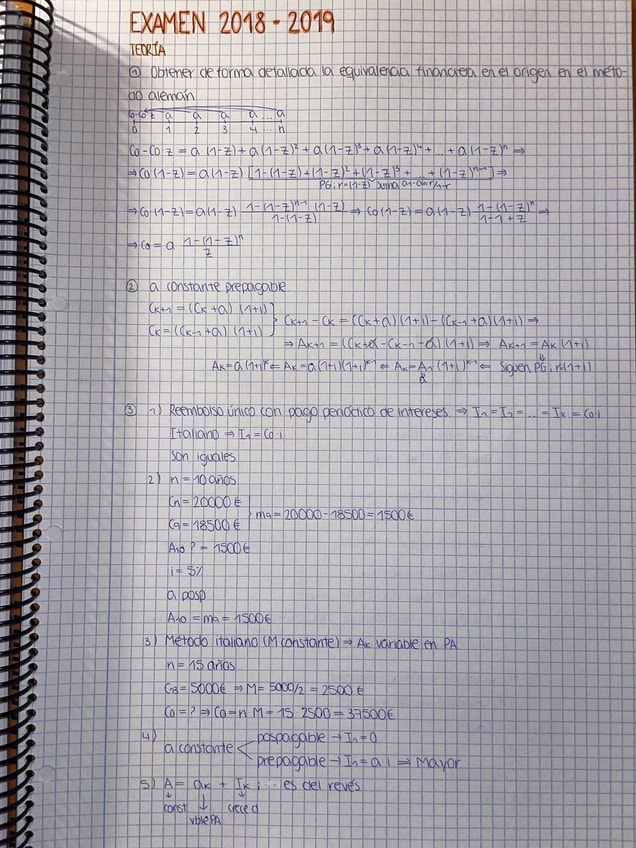 EXAMEN 2018 - 2019
TEORÍA
① Obtener de forma detallada la equivalencia financiera en el origen en el méto-
do alemán
C₀-C₀·z a a a a ... a
0 1 2 3 4 ... n
C₀ - C₀·z = a (1-z) + a (1-z)² + a (1-z)³ + a (1-z)⁴ + ... + a (1-z)ⁿ ⇒
⇒ C₀ (1-z) = a (1-z) [1 - (1-z) + (1-z)² + (1-z)³ + ... + (1-z)ⁿ⁻¹] ⇒
PG; r=(1-z) suma a1-an·r/1-r
⇒ C₀ (1-z) = a (1-z) 1-(1-z)ⁿ⁻¹ (1-z) / 1-(1-z) ⇒ C₀ (1-z) = a (1-z) 1-(1-z)ⁿ / 1-1+z ⇒
⇒ C₀ = a 1-(1-z)ⁿ / z
② a constante prepagable
Cₖ₊₁ = (Cₖ + a) (1+i)
Cₖ = (Cₖ₋₁ + a) (1+i) } Cₖ₊₁ - Cₖ = (Cₖ + a) (1+i) - (Cₖ₋₁ + a) (1+i) ⇒
⇒ Aₖ₊₁ = (Cₖ + a - Cₖ₋₁ - a) (1+i) ⇒ Aₖ₊₁ = Aₖ (1+i)
Aₖ = a (1+i)ᵏ ⇐ Aₖ = a (1+i) (1+i)ᵏ⁻¹ ⇐ Aₖ = A₁ (1+i)ᵏ⁻¹ ⇐ Siguen PG; r=(1+i)
③ 1) Reembolso único con pago periódico de intereses ⇒ I₁ = I₂ = ... = Iₖ = C₀ i
Italiano ⇒ I₁ = C₀ i
son iguales
2) n = 10 años
Cn = 20000 €
Ca = 18500 € } ma = 20000 - 18500 = 1500 €
A₁₀ ? = 1500 €
i = 5%
a posp
A₁₀ = ma = 1500 €
3) Método italiano (M constante) ⇒ Aₖ variable en PA
n = 15 años
C₁₃ = 5000 € ⇒ M = 5000/2 = 2500 €
C₀ = ? ⇒ C₀ = n · M = 15 · 2500 = 37500 €
4)
a constante < pospagable → I₁ = 0
prepagable → I₁ = a i ⇒ Mayor
5) A = aₖ + Iₖ ; ... es del revés
const crece d
vble PA